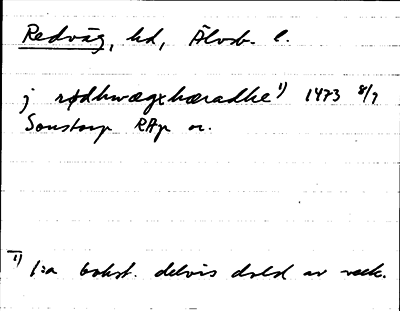 Redväg, hd, Älvsb. l.
j rødhwægxhæradhe 1) 1473 8/7
Sonstorp RAp or.
1) 1:a bokst. delvis dold av veck.